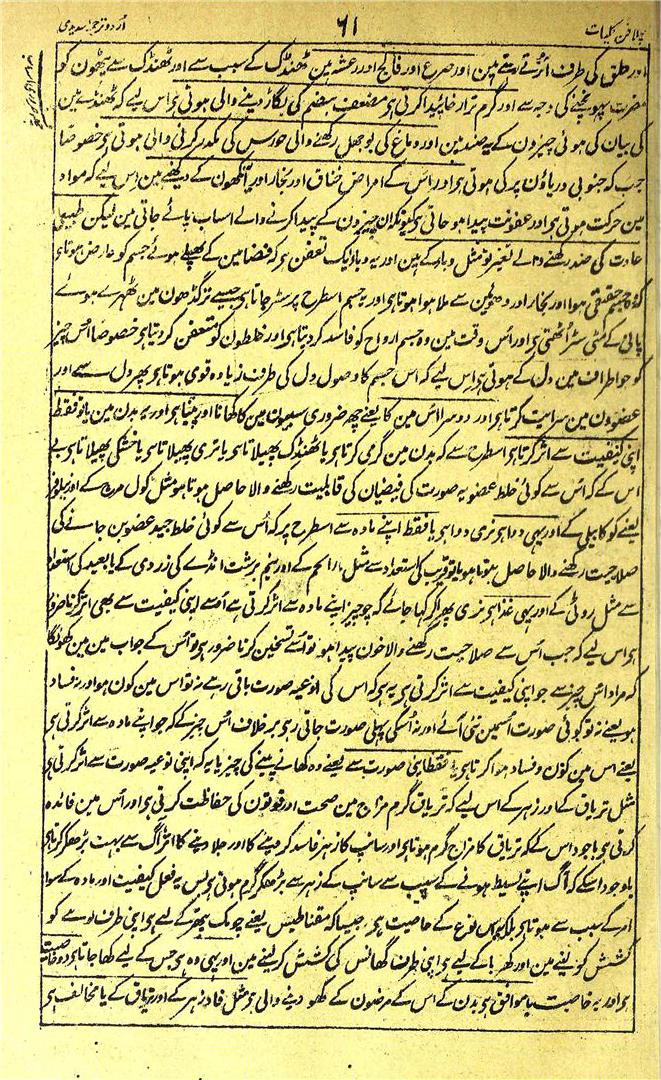 پہلا فن کلیات
٦١
اردو ترجمہ سدیدی
اور حلق کی طرف اترتے رہتے ہین اور صرع اور فالج اور رعشہ مین ٹھنڈک کے سبب سے اور ٹھنڈک سے پٹھون کو
مضرت پہونچنے کی وجہ سے اور گرم تر ارخا پیدا کرتی ہی مضعف ہضم کی بگاڑ دینے والی ہوتی ہی اس لیے کہ ٹھنڈے مین
کی بیان کی ہوئی چیزون کے یہ ضد مین اور دماغ کی بوجھل رکھنے والی حواس کی مکدر کرنے والی ہوتی ہی خصوصًا
جب کہ جنوبی دریاؤن پر کی ہوتی ہی اور اس کے امراض خناق اور بخار اور آنکھون کے دیکھنے مین اس لیے کہ مواد
مین حرکت ہوتی ہی اور عفونت پیدا ہو جاتی ہی کیونکہ ان چیزون کے پیدا کرنے والے اسباب پائے جاتی مین لیکن طبیعی
عادت کی ضد رکھنے والے تغیر تو مثل وبا کے ہین اور یہ وبا ایک تعفن ہی کہ فضا مین کے پھیلے ہوئے جسم کو عارض ہوتا ہی
جسم حقیقی ہوا اور بخار اور دھوئین سے ملا ہوا ہوتا ہی اور یہ جسم اسطرح پر سڑ جاتا ہی جیسے تر گڈھون مین ٹھہرے ہوئے
پانی کے کئی سڑ اٹھتی ہی اور اس وقت مین وہ جسم ارواح کو فاسد کر دیتا ہی اور خلطون کو متعفن کر دیتا ہی خصوصًا اس چیز
کو جو اطراف مین دل کے ہوتی ہی اس لیے کہ اس جسم کا وصول دل کی طرف زیادہ قوی ہوتا ہی پھر دل سے اور
عضوون مین سرایت کرتا ہی اور دوسرا اس مین کا یعنے چھ ضروری سببون مین کا کھانا اور پینا ہی اور یہ بدن مین یا تو فقط
اپنی کیفیت سے اثر کرتا ہی اسطرح سے کہ بدن مین گرمی کرتا ہی یا ٹھنڈک پھیلاتا ہی یا تری پھیلاتا ہی یا خشکی پھیلاتا ہی بے
اس کے کہ اس سے کوئی خلط عضویہ صورت کی فیضان کی قابلیت رکھنے والا حاصل ہوتا ہو مثل گول مرچ کے اور نیلوفر
یعنے کوکابیلی کے اور یہی دوا ہی نری دوا ہی یا فقط اپنے مادہ سے اسطرح پر کہ اس سے کوئی خلط جید عضو بن جانے کی
صلاحیت رکھنے والا حاصل ہوتا ہو یا تو قریب کی استعداد سے مثل ماء اللحم کے اور نیم برشت انڈے کی زردی کے یا بعید کی استعداد
سے مثل روٹی کے اور یہی غذا ہی نری پھر اگر کہا جائے کہ جو چیز اپنے مادہ سے اثر کرتی ہے اسے اپنی کیفیت سے بھی اثر کرنا ضرور
ہی اس لیے کہ جب اس سے صلاحیت رکھنے والا خون پیدا ہو تو اسے تسخین کرنا ضرور ہی تو اس کے جواب مین مین کہونگا
کہ مراد اس چیز سے جو اپنی کیفیت سے اثر کرتی ہی یہ ہی کہ اس کی نوعیہ صورت باقی رہے نہ تو اس مین کون ہو اور نہ فساد
ہو یعنے نہ تو کوئی صورت اسمین نئی آئے اور نہ اسکی پہلی صورت جاتی رہی برخلاف اس چیز کے کہ جو اپنے مادہ سے اثر کرتی ہی
یعنے اس مین کون و فساد ہوا کرتا ہی یا فقط اپنی صورت سے یعنے وہ کھانے پینے کی چیز یا یہ کہ اپنی نوعیہ صورت سے اثر کرتی ہی
مثل تریاق کے اور زہر کے اس لیے کہ تریاق گرم مزاج مین صحت اور قوتون کی حفاظت کرتی ہی اور اس مین فائدہ
کرتی ہی باوجود اس کے کہ تریاق کا مزاج گرم ہوتا ہی اور سانپ کا زہر فاسد کر دینے کا اور جلا دینے کا اثر آگ سے بہت بڑھکر کرتا ہی
باوجود اسکے کہ آگ اپنے بسیط ہونے کے سبب سے سانپ کے زہر سے بڑھکر گرم ہوتی ہی پس یہ فعل کیفیت اور مادہ کے سوا
امر کے سبب سے ہوتا ہی بلکہ یہ اس نوع کے خاصیت ہی جیسا کہ مقناطیس یعنے چوبک پتھر کے لیے ہی اپنی طرف لوہے کو
کشش کر لینے مین اور کہربا کے لیے ہی اپنی طرف گھانس کی کشش کر لینے مین اور یہی وہ ہی جس کے لیے کہا جاتا ہی ذو خاصیت
ہی اور یہ خاصیت یا موافق ہی بدن کے اس کے مرضون کے کھو دینے والی ہی مثل فادزہر کے اور تریاق کے یا مخالف ہی